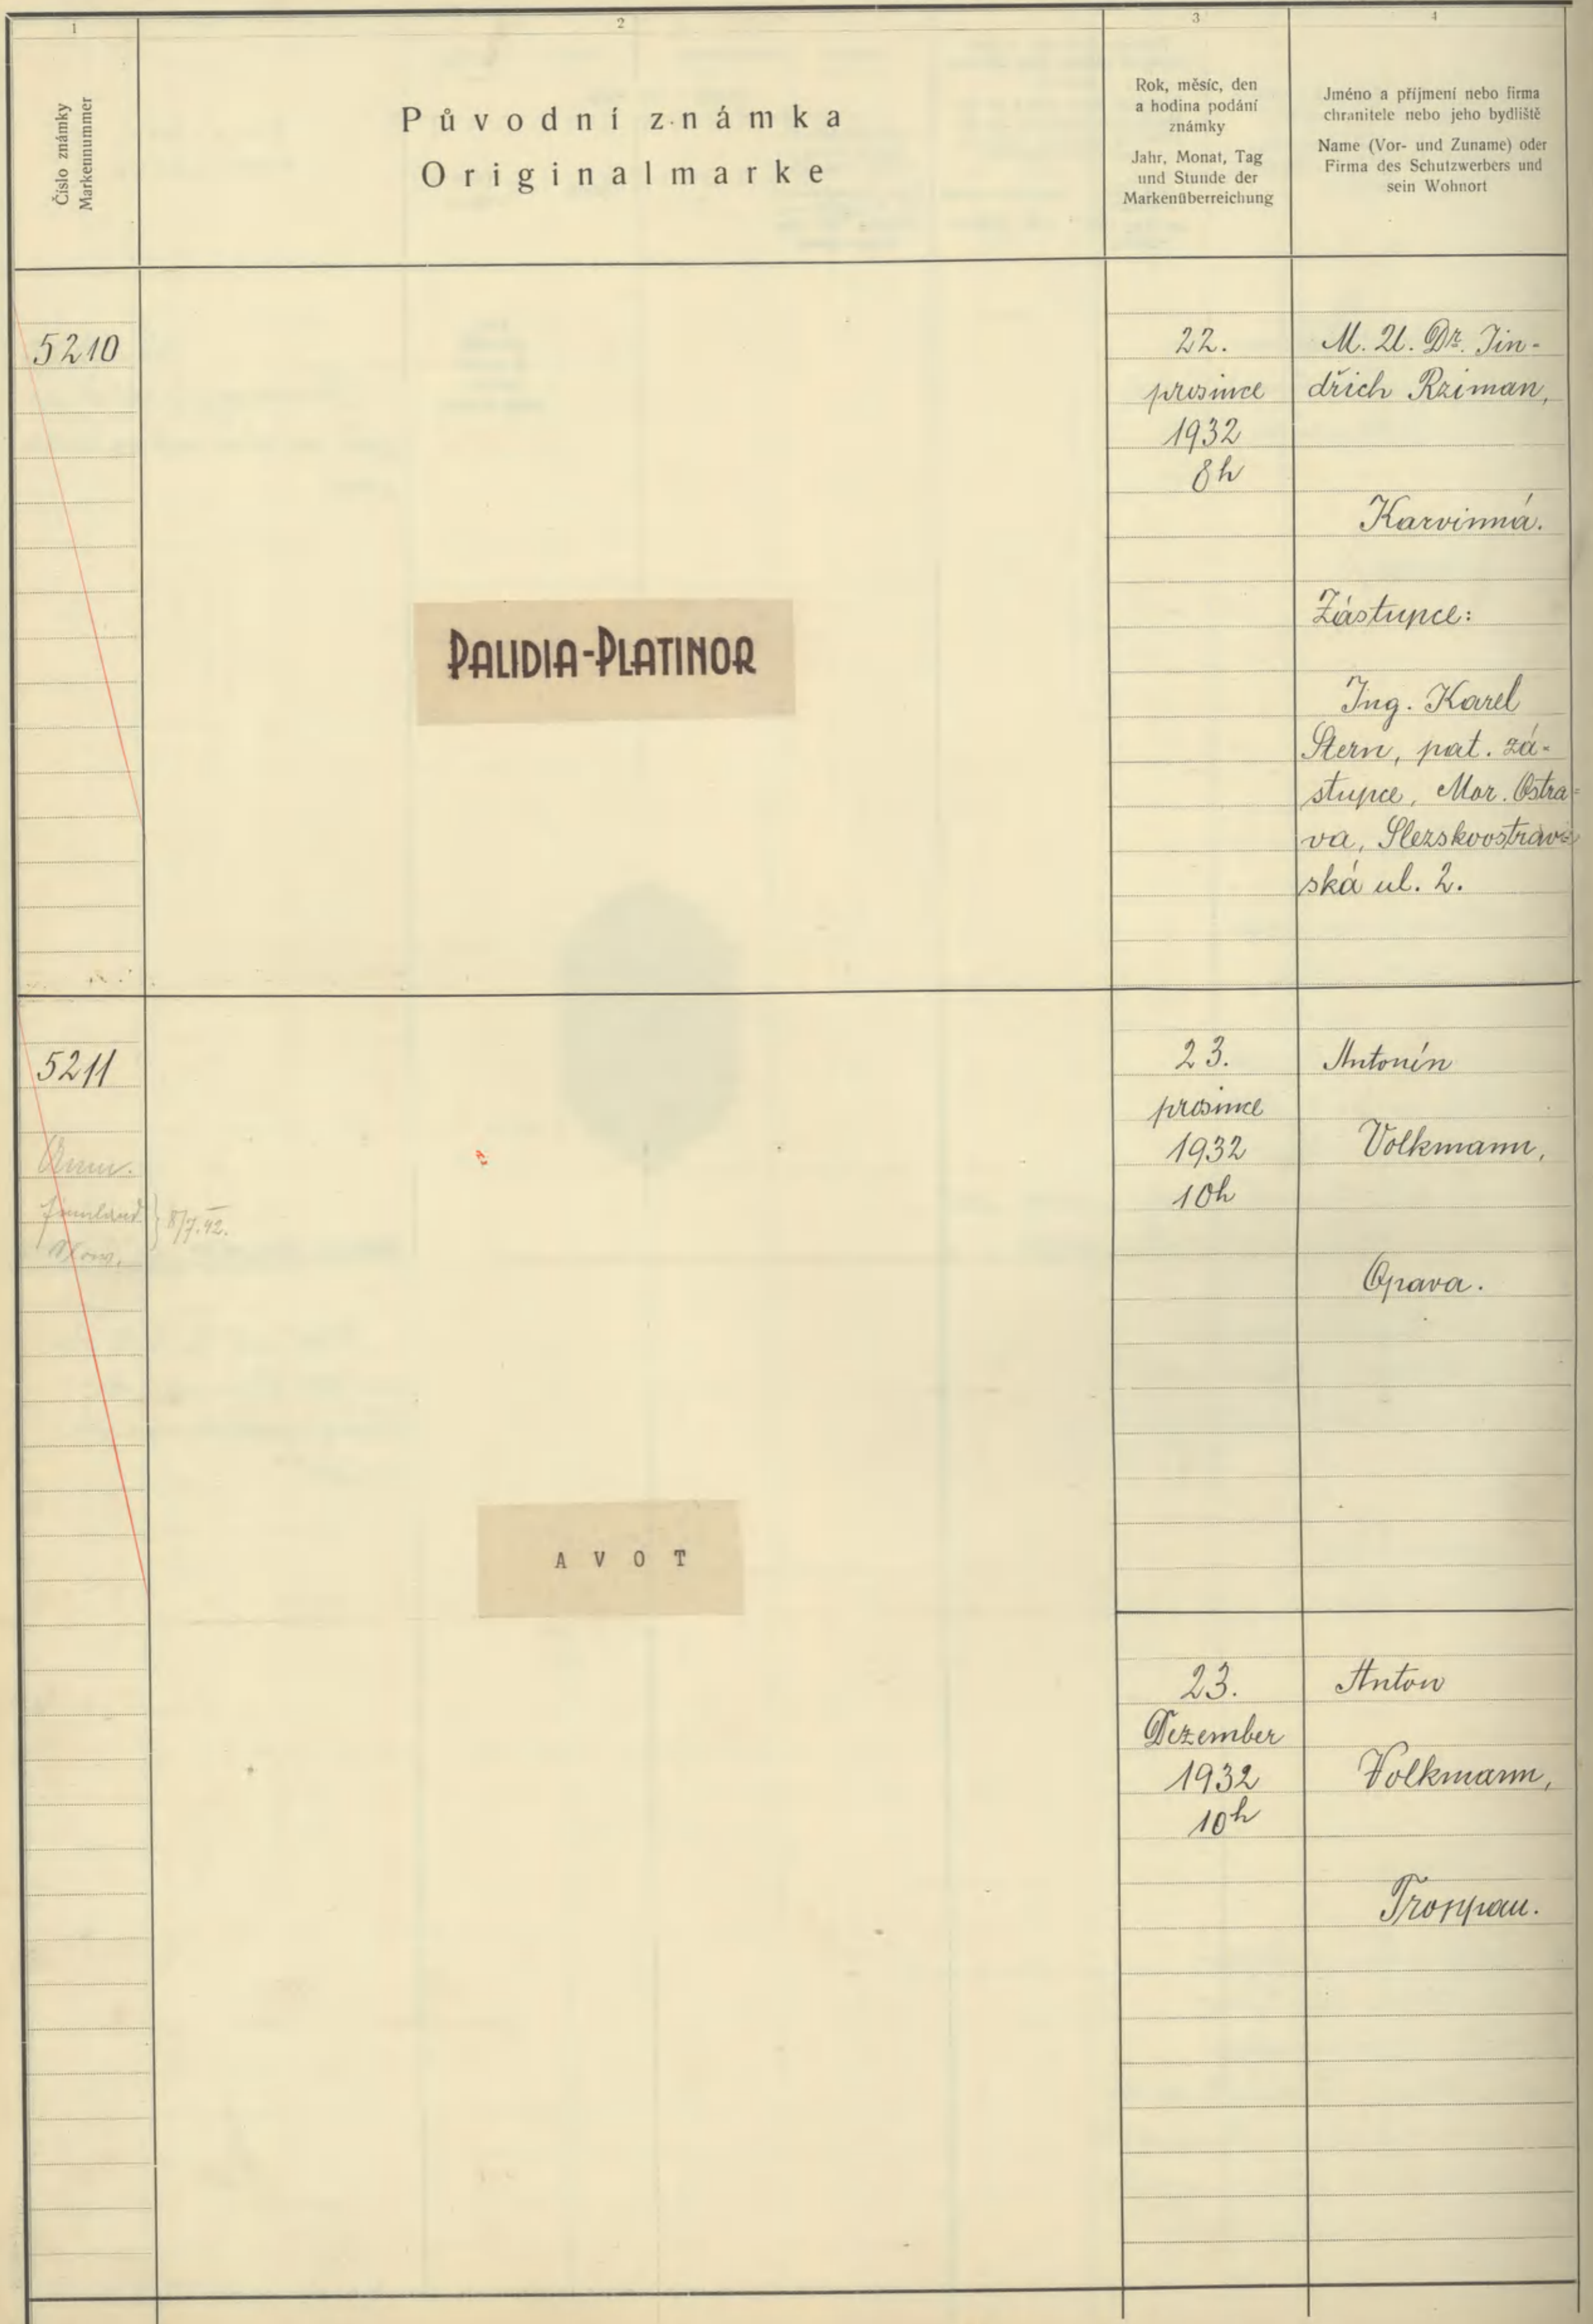 1
2
3
4
Číslo známky
Markennummer
Původní známka
Originalmarke
Rok, měsíc, den
a hodina podání
známky
Jahr, Monat, Tag
und Stunde der
Markenüberreichung
Jméno a příjmení nebo firma
chranitele nebo jeho bydliště
Name (Vor- und Zuname) oder
Firma des Schutzwerbers und
sein Wohnort
5210
PALIDIA-PLATINOR
22.
prosince
1932
8h
M. U. Dr. Jin-
dřich Rziman,
Karvinná.
Zástupce:
Ing. Karel
Stern, pat. zá-
stupce, Mor. Ostra=
va, Slezskoostrav=
ská ul. 2.
5211
8/7.42.
AVOT
23.
prosince
1932
10h
Antonín
Volkmann,
Opava.
23.
Dezember
1932
10h
Anton
Volkmann,
Troppau.